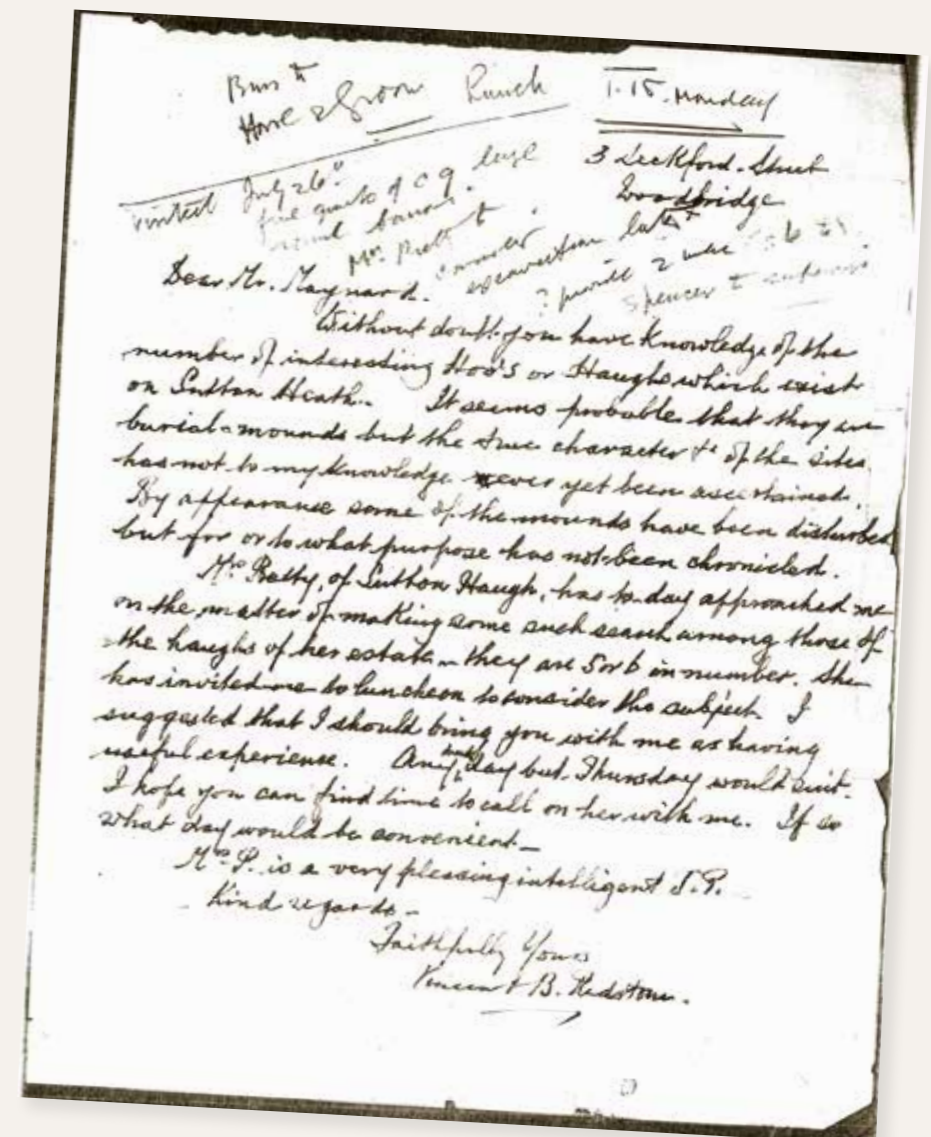 Bus to
Horse & Groom Lunch 1.15. Monday
3 Seckford-Street
Woodbridge
visited July 26th
five quarts of large
burial barrows.
Mrs. Prett
excavation later
? provide 2 men
Spencer to supervise
Dear Mr. Maynard.
Without doubt you have knowledge of the
number of interesting Hoo's or Haughs which exist
on Sutton Heath. It seems probable that they are
burial-mounds but the true character &c of the sites
has not to my knowledge ever yet been ascertained.
By appearance some of the mounds have been disturbed
but for or to what purpose has not been chronicled.
Mrs Pretty, of Sutton Haugh, has to-day approached me
on the matter of making some such search among those of
the haughs of her estate - they are 5 or 6 in number. She
has invited me to luncheon to consider the subject. I
suggested that I should bring you with me as having
useful experience. Any day but Thursday would suit.
I hope you can find time to call on her with me. If so
what day would be convenient -
Mrs P. is a very pleasing intelligent J.P.
Kind regards -
Faithfully Yours
Vincent B. Redstone.